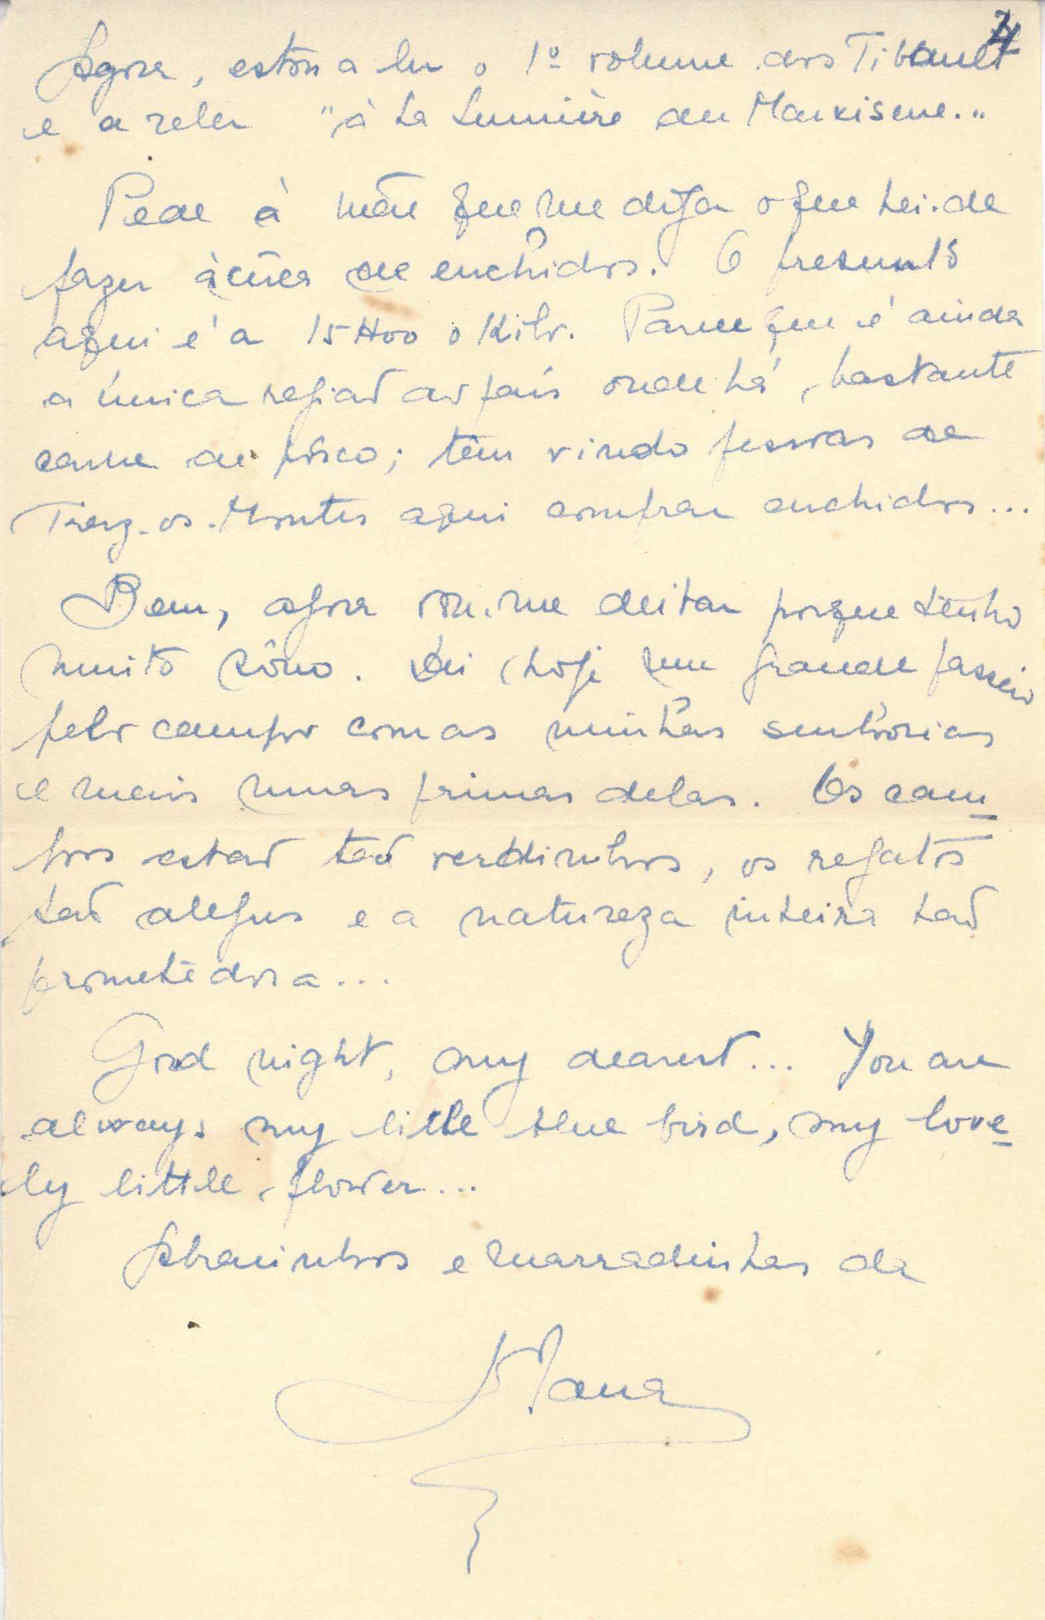 4
Agora, estou a ler o 1º volume dos Tibault
e a reler "à la Lumière du Marxisme."
Pede à mãe que me diga o que hei-de
fazer àcêrca de enchidos. O presunto
aqui é a 15$00 o kilo. Parece que é ainda
a única região do país onde há bastante
carne de porco; têm vindo pessoas de
Traz-os-Montes aqui comprar enchidos...
Bem, agora vou-me deitar porque tenho
muito sôno. Dei hoje um grande passeio
pelo campo com as minhas senhorias
e mais umas primas delas. Os cam-
pos estão tão verdinhos, os regatos
tão alegres e a natureza inteira tão
prometedora...
Good night, my dearest... You are
always my little blue bird, my love-
ly little flower...
Abracinhos e marradinhas da
Mana